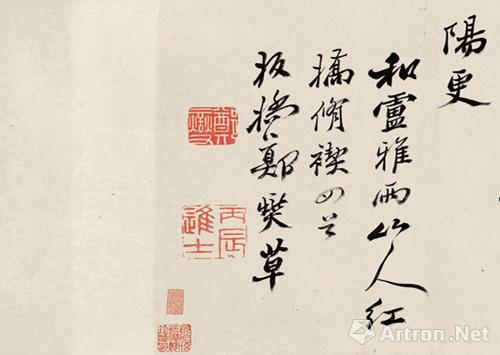 陽更
和盧雅雨山人紅
橋脩禊四首
板橋鄭燮草
鄭燮
丙辰進士
Artron.Net